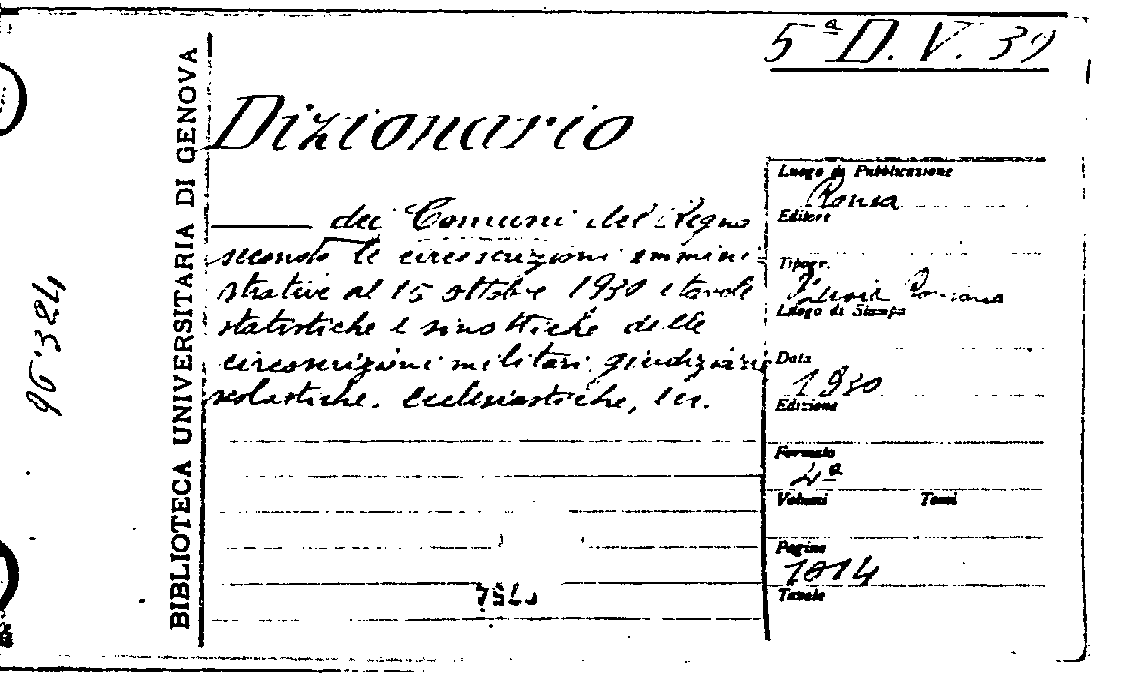 5ª D. V. 39
Dizionario
BIBLIOTECA UNIVERSITARIA DI GENOVA
96324
dei Comuni del Regno
secondo le circoscrizioni ammini-
strative al 15 ottobre 1930 e tavole
statistiche e sinottiche delle
circoscrizioni militari, giudiziarie
scolastiche. Ecclesiastiche, ecc.
Luogo di Pubblicazione
Roma
Editore
Tipogr.
Romana
Luogo di Stampa
Data
1930
Edizione
Formato
4º
Volumi Tomi
Pagine
1014
Tavole